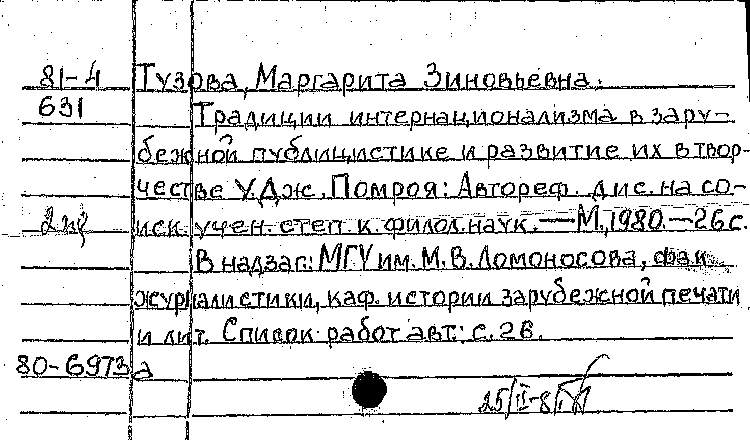 81-4 Тузова, Маргарита Зиновьевна.
631 Традиции интернационализма в зару-
бежной публицистике и развитие их в твор-
честве У.Дж. Помроя: Автореф. дис. на со-
2 иск. учен. степ. к. филол. наук. — М., 1980. — 26 с.
В надзаг.: МГУ им. М.В. Ломоносова, фак.
журналистики, каф. истории зарубежной печати
и лит. Список работ авт.: с. 26.
80-6973а
25/II-81